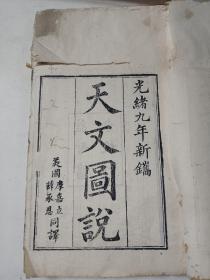 光緒九年新鐫
天文圖說
美國摩嘉立薛承恩同譯